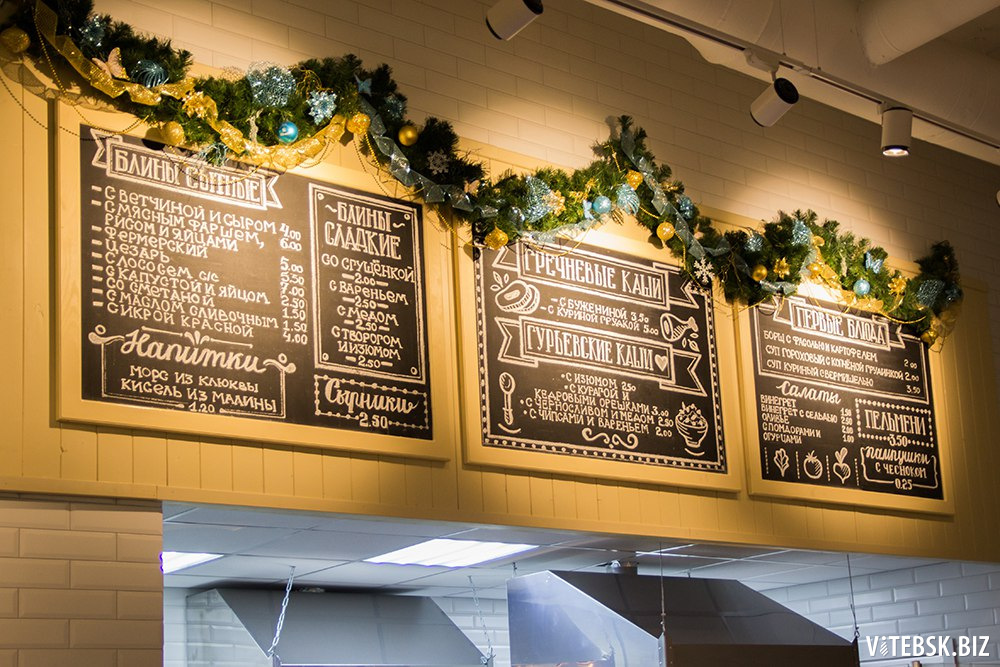 БЛИНЫ СЫТНЫЕ
- С ВЕТЧИНОЙ И СЫРОМ 4.00
- С МЯСНЫМ ФАРШЕМ,
РИСОМ И ЯЙЦАМИ 6.00
- ФЕРМЕРСКИЙ
- ЦЕЗАРЬ 5.00
- С ЛОСОСЕМ С/С 5.50
- С КАПУСТОЙ И ЯЙЦОМ 7.00
- СО СМЕТАНОЙ 2.50
- С МАСЛОМ СЛИВОЧНЫМ 1.50
- С ИКРОЙ КРАСНОЙ 1.50
4.00
Напитки
МОРС ИЗ КЛЮКВЫ
КИСЕЛЬ ИЗ МАЛИНЫ
- 1.20 -
БЛИНЫ
СЛАДКИЕ
СО СГУЩЕНКОЙ
- 2.50 -
С ВАРЕНЬЕМ
- 2.50 -
С МЕДОМ
- 2.50 -
С ТВОРОГОМ
И ИЗЮМОМ
- 2.50 -
Сырники
- 2.50 -
ГРЕЧНЕВЫЕ КАШИ
- С БУЖЕНИНОЙ 3.50
- С КУРИНОЙ ГРУДКОЙ 5.00
ГУРЬЕВСКИЕ КАШИ
- С ИЗЮМОМ 2.50
- С КУРАГОЙ И
КЕДРОВЫМИ ОРЕШКАМИ 3.00
- С ЧЕРНОСЛИВОМ И МЕДОМ 2.50
- С ЧИПСАМИ И ВАРЕНЬЕМ 2.00
ПЕРВЫЕ БЛЮДА
БОРЩ С ФАСОЛЬЮ И КАРТОФЕЛЕМ 2.00
СУП ГОРОХОВЫЙ С КОПЧЕНОЙ ГРУДИНКОЙ 2.00
СУП КУРИНЫЙ С ВЕРМИШЕЛЬЮ 3.50
Салаты
ВИНЕГРЕТ
ВИНЕГРЕТ С СЕЛЬДЬЮ 1.50
ОЛИВЬЕ 2.50
С ПОМИДОРАМИ И 2.00
ОГУРЦАМИ 1.00
ПЕЛЬМЕНИ
- 3.50 -
Пампушки
С ЧЕСНОКОМ
0.25
VITEBSK.BIZ